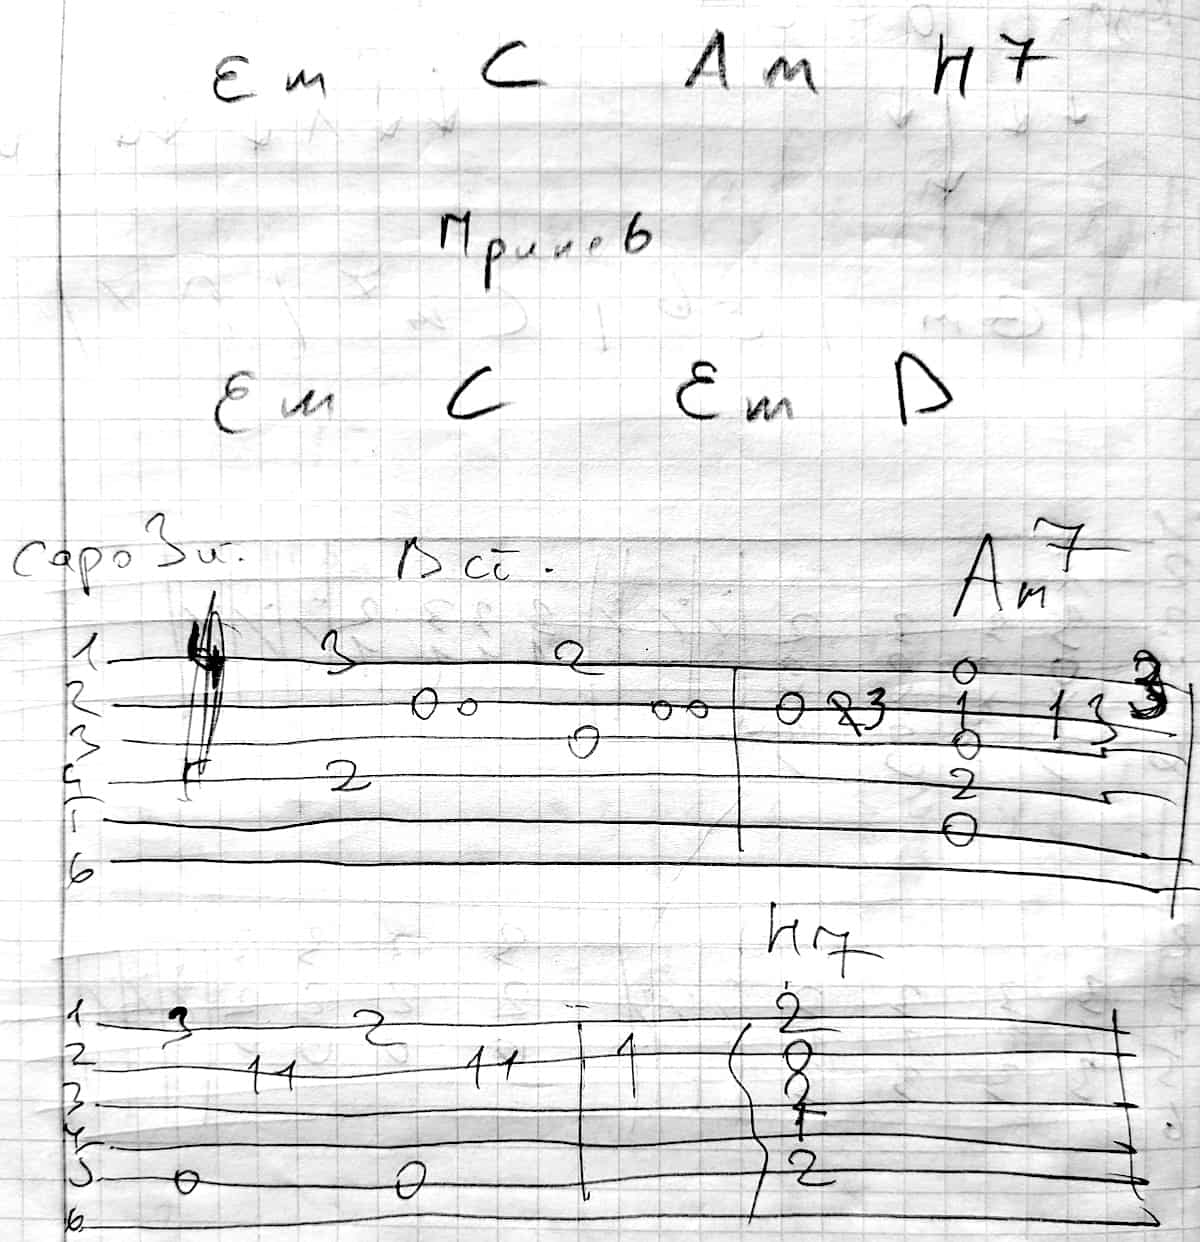 Em C Am H7
Припев
Em C Em D
capo 3 п. Вст.
Am7
1 3 2 0 3
2 0 0 0 0 0 3 1 1 3
3 0 0
4 2 2
5 0
6
H7
1 3 2 2
2 1 1 1 1 1 0
3 2
4 1
5 0 0 2
6